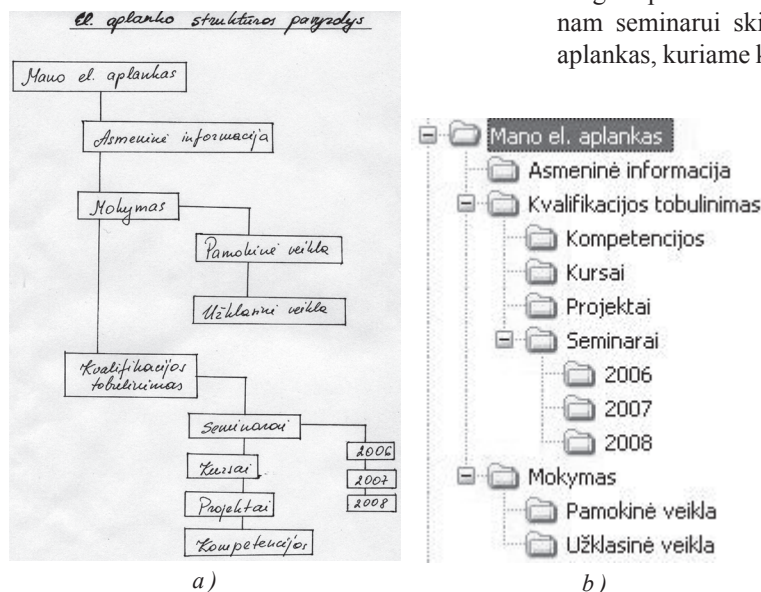 El. aplanko struktūros pavyzdys
nam seminarui ski
aplankas, kuriame k
Mano el. aplankas
Asmeninė informacija
Mokymas
Pamokinė veikla
Užklasinė veikla
Kvalifikacijos
tobulinimas
Seminarai
2006
2007
2008
Kursai
Projektai
Kompetencijos
a)
Mano el. aplankas
Asmeninė informacija
Kvalifikacijos tobulinimas
Kompetencijos
Kursai
Projektai
Seminarai
2006
2007
2008
Mokymas
Pamokinė veikla
Užklasinė veikla
b)